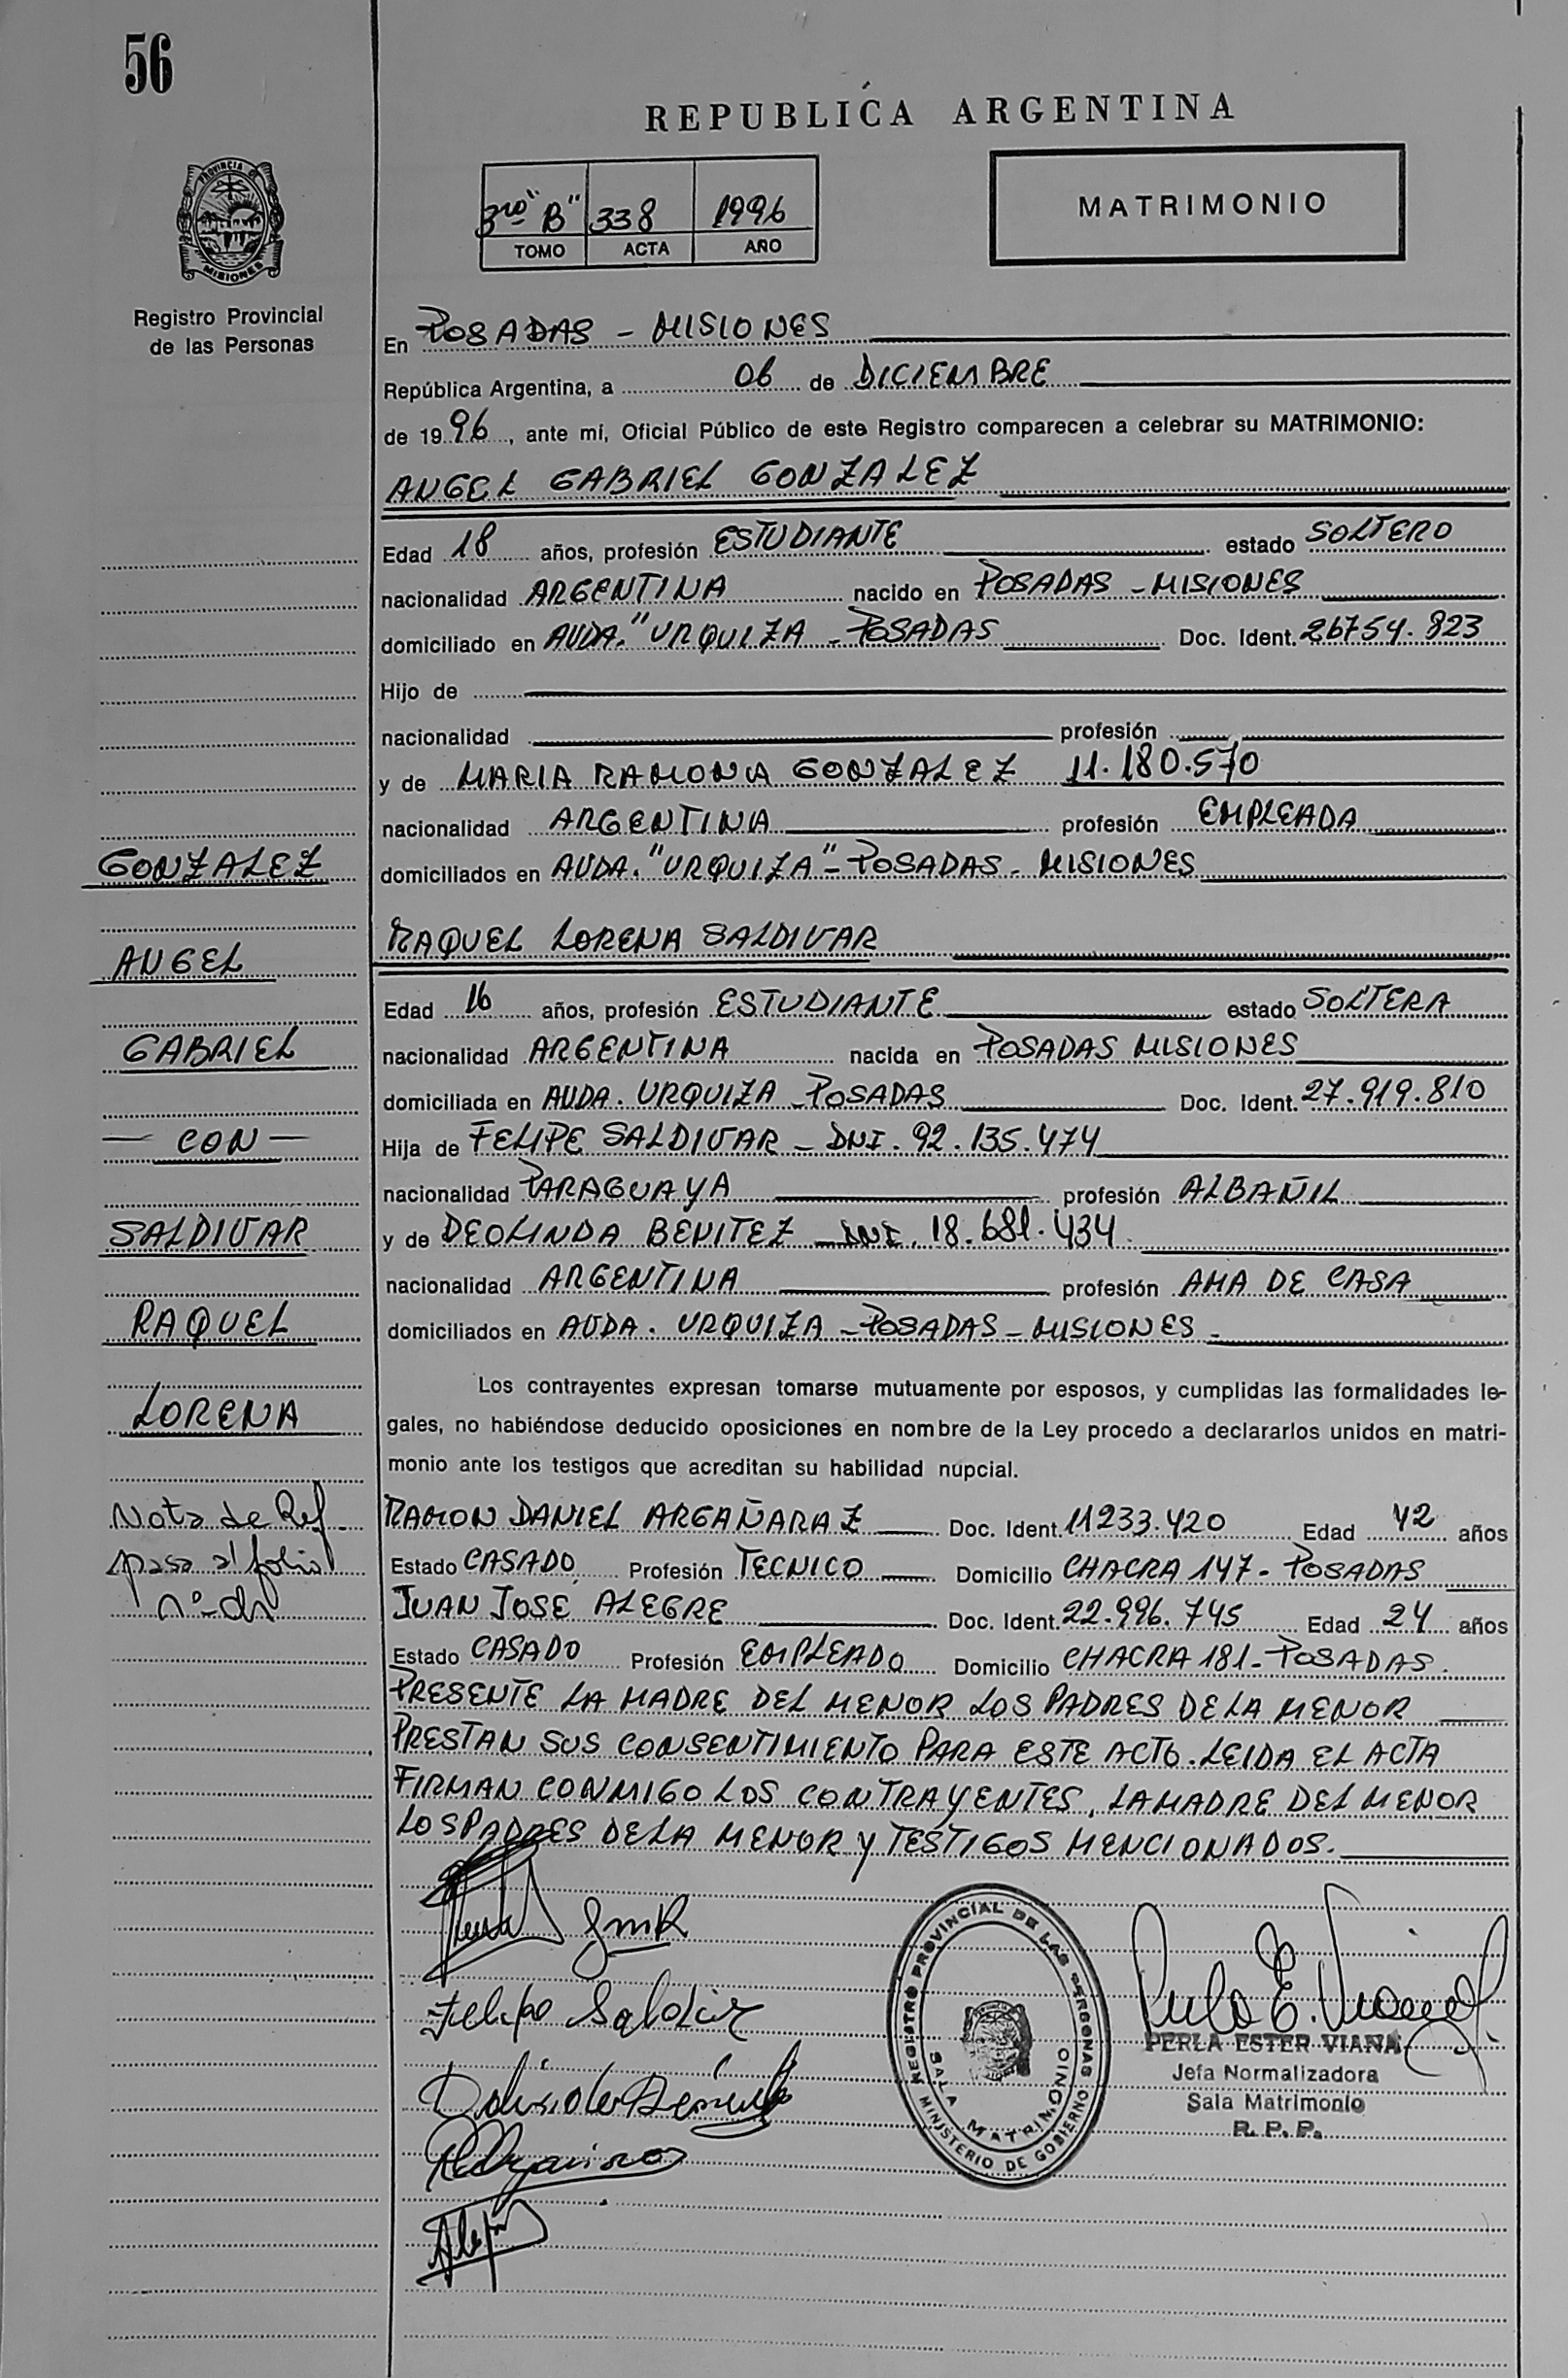 56
REPUBLICA ARGENTINA
PROVINCIA DE
MISIONES
Registro Provincial
de las Personas
3ro "B" 338 1996
TOMO ACTA AÑO
MATRIMONIO
En POSADAS - MISIONES
República Argentina, a 06 de DICIEMBRE
de 1996, ante mí, Oficial Público de este Registro comparecen a celebrar su MATRIMONIO:
ANGEL GABRIEL GONZALEZ
Edad 18 años, profesión ESTUDIANTE estado SOLTERO
nacionalidad ARGENTINA nacido en POSADAS - MISIONES
domiciliado en AVDA. "URQUIZA - POSADAS Doc. Ident. 26754.823
Hijo de
nacionalidad profesión
y de MARIA RAMONA GONZALEZ 11.180.570
nacionalidad ARGENTINA profesión EMPLEADA
domiciliados en AVDA. "URQUIZA" - POSADAS - MISIONES
RAQUEL LORENA SALDIVAR
Edad 16 años, profesión ESTUDIANTE estado SOLTERA
nacionalidad ARGENTINA nacida en POSADAS MISIONES
domiciliada en AVDA. URQUIZA - POSADAS Doc. Ident. 27.919.810
Hija de FELIPE SALDIVAR - DNI. 92.135.474
nacionalidad PARAGUAYA profesión ALBAÑIL
y de DEOLINDA BENITEZ - DNI. 18.681.434
nacionalidad ARGENTINA profesión AMA DE CASA
domiciliados en AVDA. URQUIZA - POSADAS - MISIONES -
Los contrayentes expresan tomarse mutuamente por esposos, y cumplidas las formalidades le-
gales, no habiéndose deducido oposiciones en nombre de la Ley procedo a declararlos unidos en matri-
monio ante los testigos que acreditan su habilidad nupcial.
RAMON DANIEL ARGAÑARAZ Doc. Ident. 11233.420 Edad 42 años
Estado CASADO Profesión TECNICO Domicilio CHACRA 147 - POSADAS
JUAN JOSE ALEGRE Doc. Ident. 22.996.745 Edad 24 años
Estado CASADO Profesión EMPLEADO Domicilio CHACRA 181 - POSADAS.
PRESENTE LA MADRE DEL MENOR LOS PADRES DE LA MENOR
PRESTAN SUS CONSENTIMIENTO PARA ESTE ACTO. LEIDA EL ACTA
FIRMAN CONMIGO LOS CONTRAYENTES, LA MADRE DEL MENOR
LOS PADRES DE LA MENOR Y TESTIGOS MENCIONADOS.
GONZALEZ
ANGEL
GABRIEL
- CON -
SALDIVAR
RAQUEL
LORENA
Nota de Ref.
pasa al folio
GmR
Felipe Saldivar
REGISTRO PROVINCIAL DE LAS PERSONAS
MINISTERIO DE GOBIERNO
SALA MATRIMONIO
PERLA ESTER VIANA
Jefa Normalizadora
Sala Matrimonio
R. P. P.